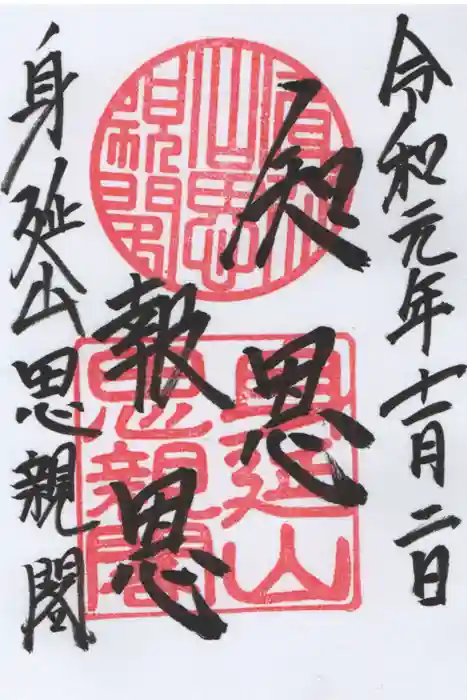 令和元年十一月二日
知恩
報恩
身延山思親閣
身延山
思親閣